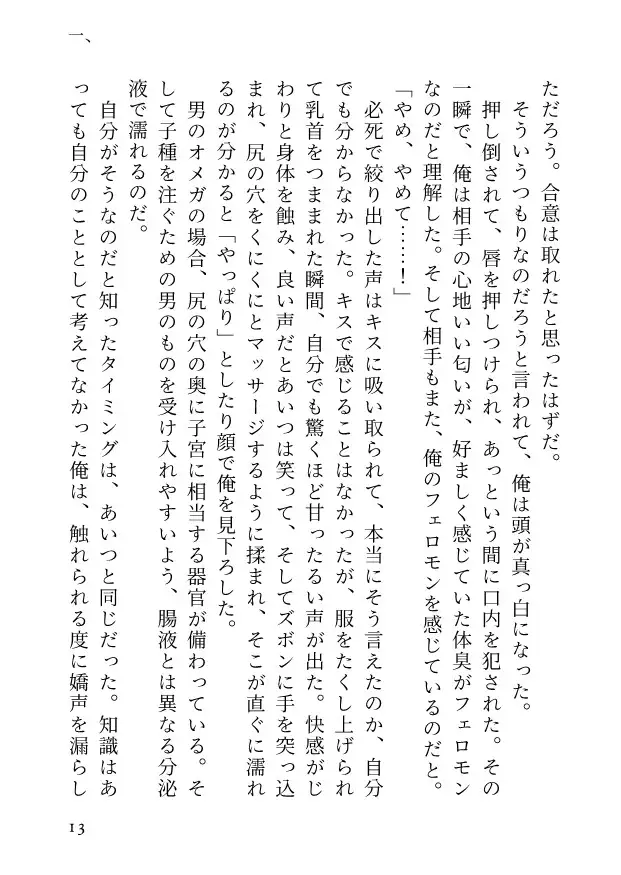 一、
ただろう。合意は取れたと思ったはずだ。
そういうつもりなのだろうと言われて、俺は頭が真っ白になった。
押し倒されて、唇を押しつけられ、あっという間に口内を犯された。その
一瞬で、俺は相手の心地いい匂いが、好ましく感じていた体臭がフェロモン
なのだと理解した。そして相手もまた、俺のフェロモンを感じているのだと。
「やめ、やめて……！」
必死で絞り出した声はキスに吸い取られて、本当にそう言えたのか、自分
でも分からなかった。キスで感じることはなかったが、服をたくし上げられ
て乳首をつままれた瞬間、自分でも驚くほど甘ったるい声が出た。快感がじ
わりと身体を蝕み、良い声だとあいつは笑って、そしてズボンに手を突っ込
まれ、尻の穴をくにくにとマッサージするように揉まれ、そこが直ぐに濡れ
るのが分かると「やっぱり」としたり顔で俺を見下ろした。
男のオメガの場合、尻の穴の奥に子宮に相当する器官が備わっている。そ
して子種を注ぐための男のものを受け入れやすいよう、腸液とは異なる分泌
液で濡れるのだ。
自分がそうなのだと知ったタイミングは、あいつと同じだった。知識はあ
っても自分のこととして考えてなかった俺は、触れられる度に嬌声を漏らし
13